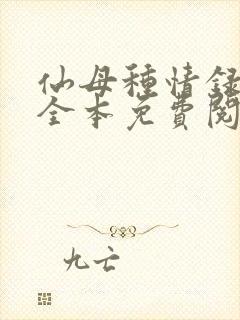 仙母種情録
全本免費閱
九亡